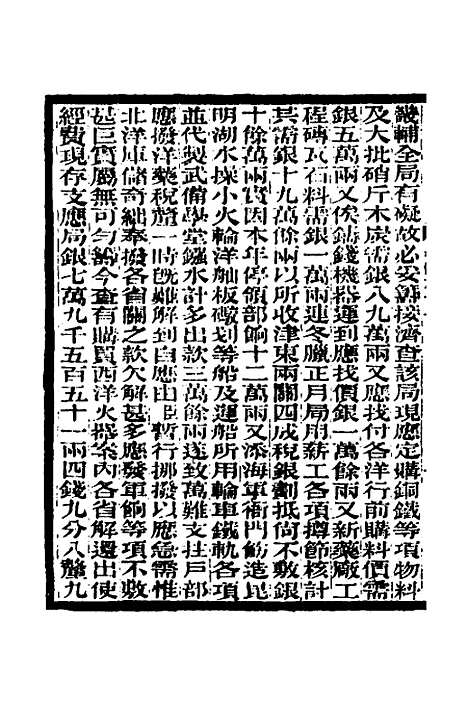 畿輔全局有礙故必妥籌接濟查該局現應定購銅鐵等項物料
及大批硝斤木炭需銀八九萬兩又應找付各洋行前購料價需
銀五萬兩又俟鑄錢機器運到應找價銀一萬餘兩又新藥廠工
程磚瓦石料需銀一萬兩連冬臘正月局用薪工各項撙節核計
共需銀十九萬餘兩以所收津東兩關四成稅銀劃抵尚不敷銀
十餘萬兩實因本年停領部餉十二萬兩又添海軍衙門飭造昆
明湖水操小火輪洋舢板礮划等船及運船所用輪車鐵軌各項
並代製武備學堂鏹水計多出款三萬餘兩遂致萬難支拄戶部
應撥洋藥稅釐一時旣難解到自應由臣暫行挪撥以應急需惟
北洋庫儲奇絀奉撥各省關之款欠解甚多應發軍餉等項不敷
甚巨實屬無可勻籌今查有購買西洋火器案內各省解還出使
經費現存支應局銀七萬九千五百五十一兩四錢九分八釐九